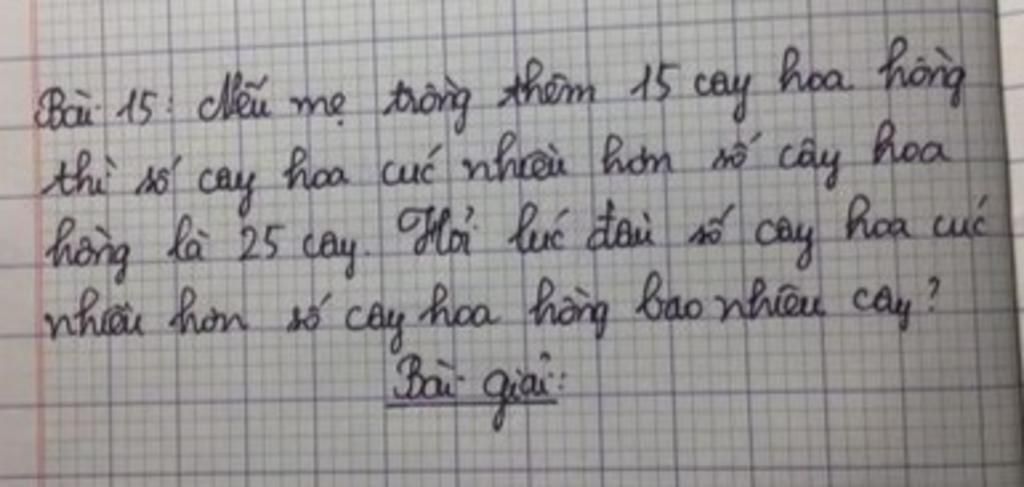 Bài 15: Nếu mẹ trồng thêm 15 cây hoa hồng
thì số cây hoa cúc nhiều hơn số cây hoa
hồng là 25 cây. Hỏi lúc đầu số cây hoa cúc
nhiều hơn số cây hoa hồng bao nhiêu cây?
Bài giải: